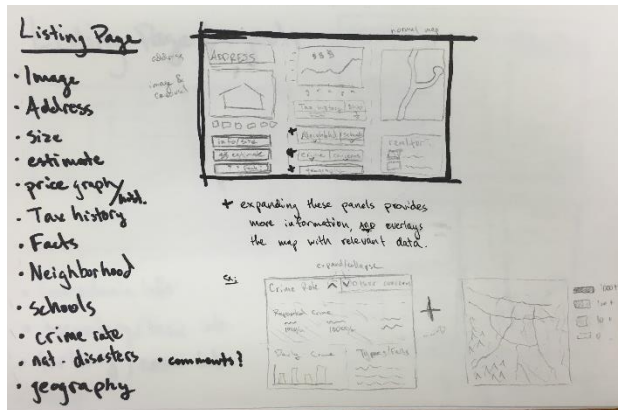 Listing Page
• Image
• Address
• Size
• estimate
• price graphy/
• Tax history
• Facts
• Neighborhood
• schools
• crime rate
• nat. disasters
• geography
• comments?
normal map
address
ADDRESS
$$$
image &
Tax history
info/size
$$ estimate
Facts
realtor
+ expanding these panels provides
more information, and overlays
the map with relevant data.
ex:
expand/collapse
Crime Rate
Other concern
Reported Crime
Daily Crime
Types/Facts
+